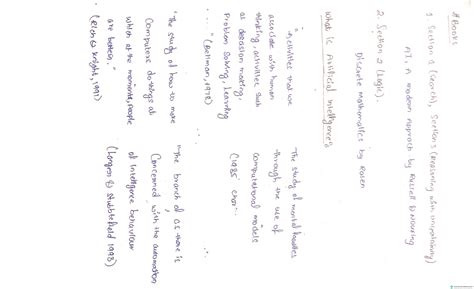 # Books
1. Section 1 (search), Section 3 (Reasoning with uncertainity)
AI, A modern approach by Russell & Norving
2. Section 2 (Logic).
Discrete Mathematics by Rosen
What is Artificial Intelligence?
"Activities that we
associate with human
thinking, activities such
as decision making,
Problem solving, learning
..."
(Bellman, 1978)
"The study of how to make
Computers do things at
which at the moment, people
are better."
(Rich & Knight, 1991)
The study of mental faculties
through the use of
computational models
(1985
"The branch of CS that is
Concerned with the automation
of intelligence behaviour
(Stubblefield 1993)